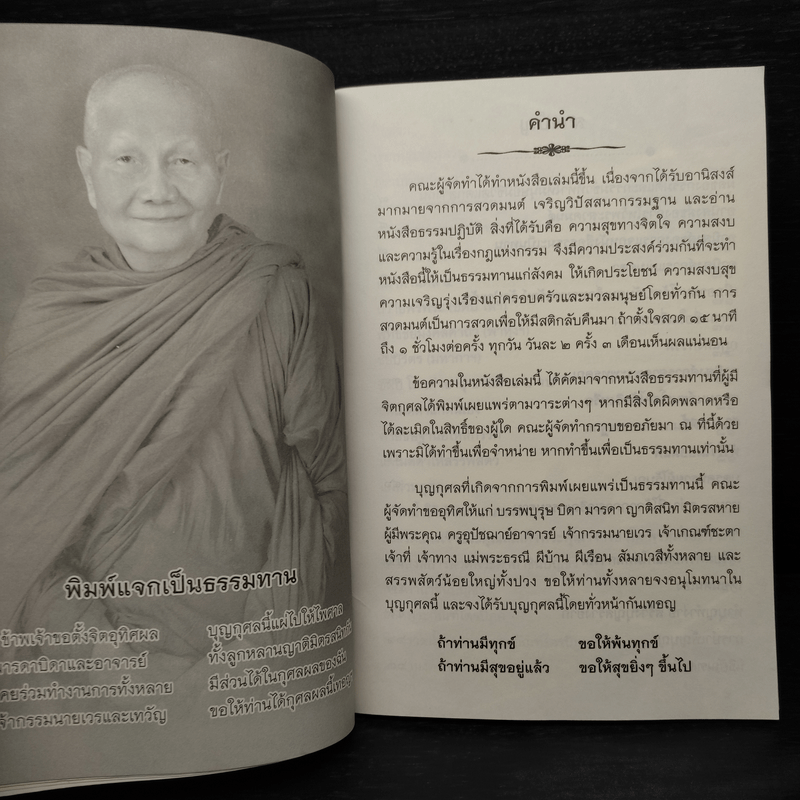 พิมพ์แจกเป็นธรรมทาน
ข้าพเจ้าขอตั้งจิตอุทิศผล
มารดาบิดาและอาจารย์
เคยร่วมทำงานการทั้งหลาย
เจ้ากรรมนายเวรและเทวัญ
บุญกุศลนี้แผ่ไปให้ไพศาล
ทั้งลูกหลานญาติมิตรสนิทกัน
มีส่วนได้ในกุศลผลของฉัน
ขอให้ท่านได้กุศลผลนี้เทอญ
คำนำ
คณะผู้จัดทำได้ทำหนังสือเล่มนี้ขึ้น เนื่องจากได้รับอานิสงส์
มากมายจากการสวดมนต์ เจริญวิปัสสนากรรมฐาน และอ่าน
หนังสือธรรมปฏิบัติ สิ่งที่ได้รับคือ ความสุขทางจิตใจ ความสงบ
และความรู้ในเรื่องกฎแห่งกรรม จึงมีความประสงค์ร่วมกันที่จะทำ
หนังสือนี้ให้เป็นธรรมทานแก่สังคม ให้เกิดประโยชน์ ความสงบสุข
ความเจริญรุ่งเรืองแก่ครอบครัวและมวลมนุษย์โดยทั่วกัน การ
สวดมนต์เป็นการสวดเพื่อให้มีสติกลับคืนมา ถ้าตั้งใจสวด ๑๕ นาที
ถึง ๑ ชั่วโมงต่อครั้ง ทุกวัน วันละ ๒ ครั้ง ๓ เดือนเห็นผลแน่นอน
ข้อความในหนังสือเล่มนี้ ได้คัดมาจากหนังสือธรรมทานที่ผู้มี
จิตกุศลได้พิมพ์เผยแพร่ตามวาระต่างๆ หากมีสิ่งใดผิดพลาดหรือ
ได้ละเมิดในสิทธิ์ของผู้ใด คณะผู้จัดทำกราบขออภัยมา ณ ที่นี้ด้วย
เพราะมิได้ทำขึ้นเพื่อจำหน่าย หากทำขึ้นเพื่อเป็นธรรมทานเท่านั้น
บุญกุศลที่เกิดจากการพิมพ์เผยแพร่เป็นธรรมทานนี้ คณะ
ผู้จัดทำขออุทิศให้แก่ บรรพบุรุษ บิดา มารดา ญาติสนิท มิตรสหาย
ผู้มีพระคุณ ครูอุปัชฌาย์อาจารย์ เจ้ากรรมนายเวร เจ้าเกณฑ์ชะตา
เจ้าที่ เจ้าทาง แม่พระธรณี ผีบ้าน ผีเรือน สัมภเวสีทั้งหลาย และ
สรรพสัตว์น้อยใหญ่ทั้งปวง ขอให้ท่านทั้งหลายจงอนุโมทนาใน
บุญกุศลนี้ และจงได้รับบุญกุศลนี้โดยทั่วหน้ากันเทอญ
ถ้าท่านมีทุกข์ ขอให้พ้นทุกข์
ถ้าท่านมีสุขอยู่แล้ว ขอให้สุขยิ่งๆ ขึ้นไป